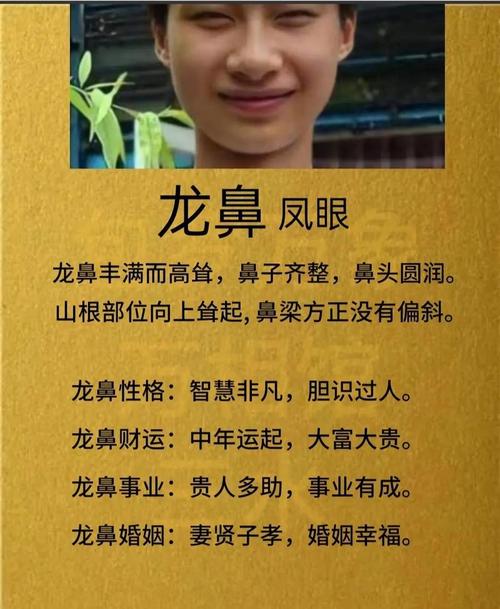 龙鼻 凤眼
龙鼻丰满而高耸，鼻子齐整，鼻头圆润。
山根部位向上耸起，鼻梁方正没有偏斜。
龙鼻性格：智慧非凡，胆识过人。
龙鼻财运：中年运起，大富大贵。
龙鼻事业：贵人多助，事业有成。
龙鼻婚姻：妻贤子孝，婚姻幸福。